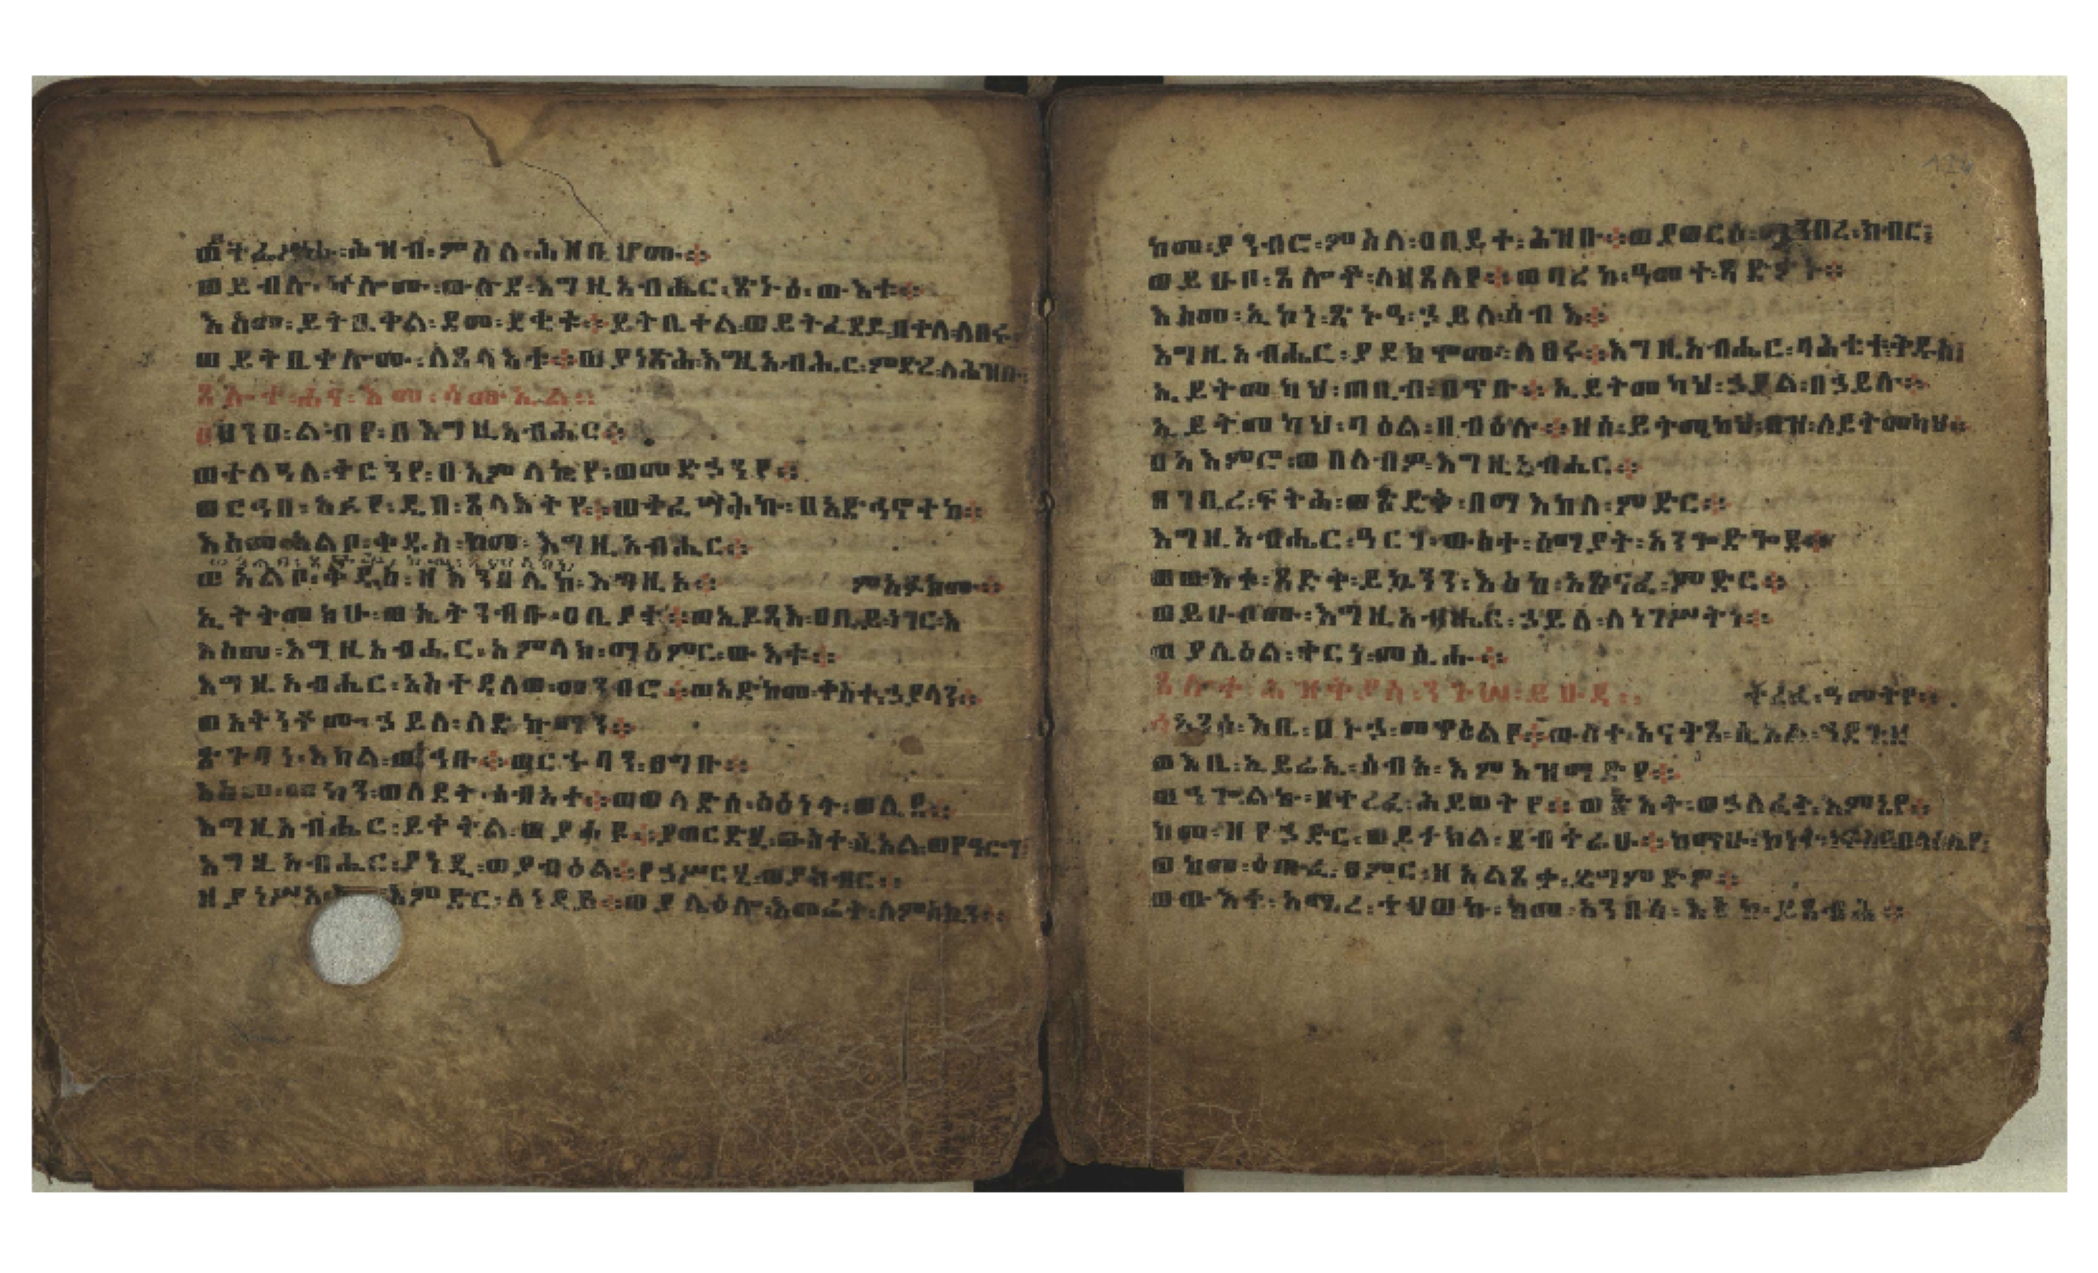 ወትፈሥሑ፡ሕዝብ፡ምስለ፡ሕዝቢሆሙ፨
ወይብሉ፡ኵሎሙ፡ውሉደ፡እግዚአብሔር፡ጽኑዕ፡ውእቱ፨
እስመ፡ይትቤቀል፡ደመ፡ደቂቁ፨ይትቤቀል፡ወይትፈደይ፡በቀለ፡ለፀሩ፨
ወይትቤቀሎሙ፡ለጸላእቱ፨ወያነጽሕ፡እግዚአብሔር፡ምድረ፡ለሕዝቡ፨
ጸሎተ፡ሐና፡እመ፡ሳሙኤል፨
ፀንዐ፡ልብየ፡በእግዚአብሔር፨
ወተለዓለ፡ቀርንየ፡በአምላኪየ፡ወመድኃንየ፨
ወርኅበ፡አፉየ፡ዲበ፡ጸላእትየ፨ወተፈሣሕኩ፡በአድኅኖትከ፨
እስመ፡አልቦ፡ቅዱስ፡ከመ፡እግዚአብሔር፨
ወአልቦ፡ቅዱስ፡ዘእንበሌከ፡እግዚአ፨ ምአፉክሙ፨
ኢትትመክሁ፡ወኢትንብቡ፡ዐቢያተ፨ወኢይጻእ፡ዐቢይ፡ነገር፡እ
እስመ፡እግዚአብሔር፡አምላክ፡ማዕምር፡ውእቱ፨
እግዚአብሔር፡አስተዳለወ፡መንብሮ፨ወአድከመ፡ቀስተ፡ኃያላን፨
ወአቅነቶሙ፡ኃይለ፡ለድኩማን፨
ጽጉባነ፡እክል፡ወኅቡ፨ወርኁባን፡ፀግቡ፨
እስመ፡መካን፡ወለደት፡ሰብአተ፨ወወላድሰ፡ስእነት፡ወሊደ፨
እግዚአብሔር፡ይቀትል፡ወያሐዩ፨ያወርድሂ፡ውስተ፡ሲኦል፡ወየዓርግ፡
እግዚአብሔር፡ያነዲ፡ወያብዕል፨የኃሥርሂ፡ወያከብር፨
ዘያነሥኦ፡እምድር፡ለነዳይ፨ወያሌዕሎ፡እመሬት፡ለምስኪን፨
ከመ፡ያንብሮ፡ምስለ፡ዐበይተ፡ሕዝቡ፨ወያወርሶ፡መንበረ፡ክብር፨
ወይሁቦ፡ጸሎቶ፡ለዘጸለየ፨ወባረከ፡ዓመተ፡ጻድቃን፨
እስመ፡ኢኮነ፡ጽኑዓ፡ኃይለ፡ሰብእ፨
እግዚአብሔር፡ያደክሞሙ፡ለፀሩ፨እግዚአብሔር፡ባሕቲቱ፡ቅዱስ፡
ኢይትመካህ፡ጠቢብ፡በጥቡ፨ኢይትመካህ፡ኃያል፡በኃይሉ፨
ኢይትመካህ፡ባዕል፡በብዕሉ፨ዘሰ፡ይትሜካህ፡በዝ፡ለይትመካህ፨
በአእምሮ፡ወበለብዎ፡እግዚአብሔር፨
ዘገቢረ፡ፍትሕ፡ወጽድቅ፡በማእከለ፡ምድር፨
እግዚአብሔር፡ዓርገ፡ውስተ፡ሰማያት፡አንጐድጐደ፨
ወውእቱ፡ጻድቅ፡ይኴንን፡እስከ፡አጽናፈ፡ምድር፨
ወይሁቦሙ፡እግዚአብሔር፡ኃይለ፡ለነገሥትነ፨
ወያሌዕል፡ቀርነ፡መሲሑ፨
ጸሎተ፡ሕዝቅያስ፡ንጉሠ፡ይሁዳ፨ ትረፈ፡ዓመትየ፨
አንሰ፡እቤ፡በኑኃ፡መዋዕልየ፨ውስተ፡አናቅጸ፡ሲኦል፡ኀደጉ፡ዘ
ወእቤ፡ኢይሬኢ፡ሰብአ፡እምአዝማድየ፨
ወኃጐልኩ፡ዘተረፈ፡ሕይወትየ፨ወፃእት፡ወኃለፈት፡እምኔየ፨
ወከመ፡ዕጹፈ፡ፀምር፡ዘአልጸቃ፡ለግምድዎ፨
ወውእተ፡አሚረ፡ተህወኩ፡ከመ፡አንበሳ፡እስከ፡ይጸብሕ፨